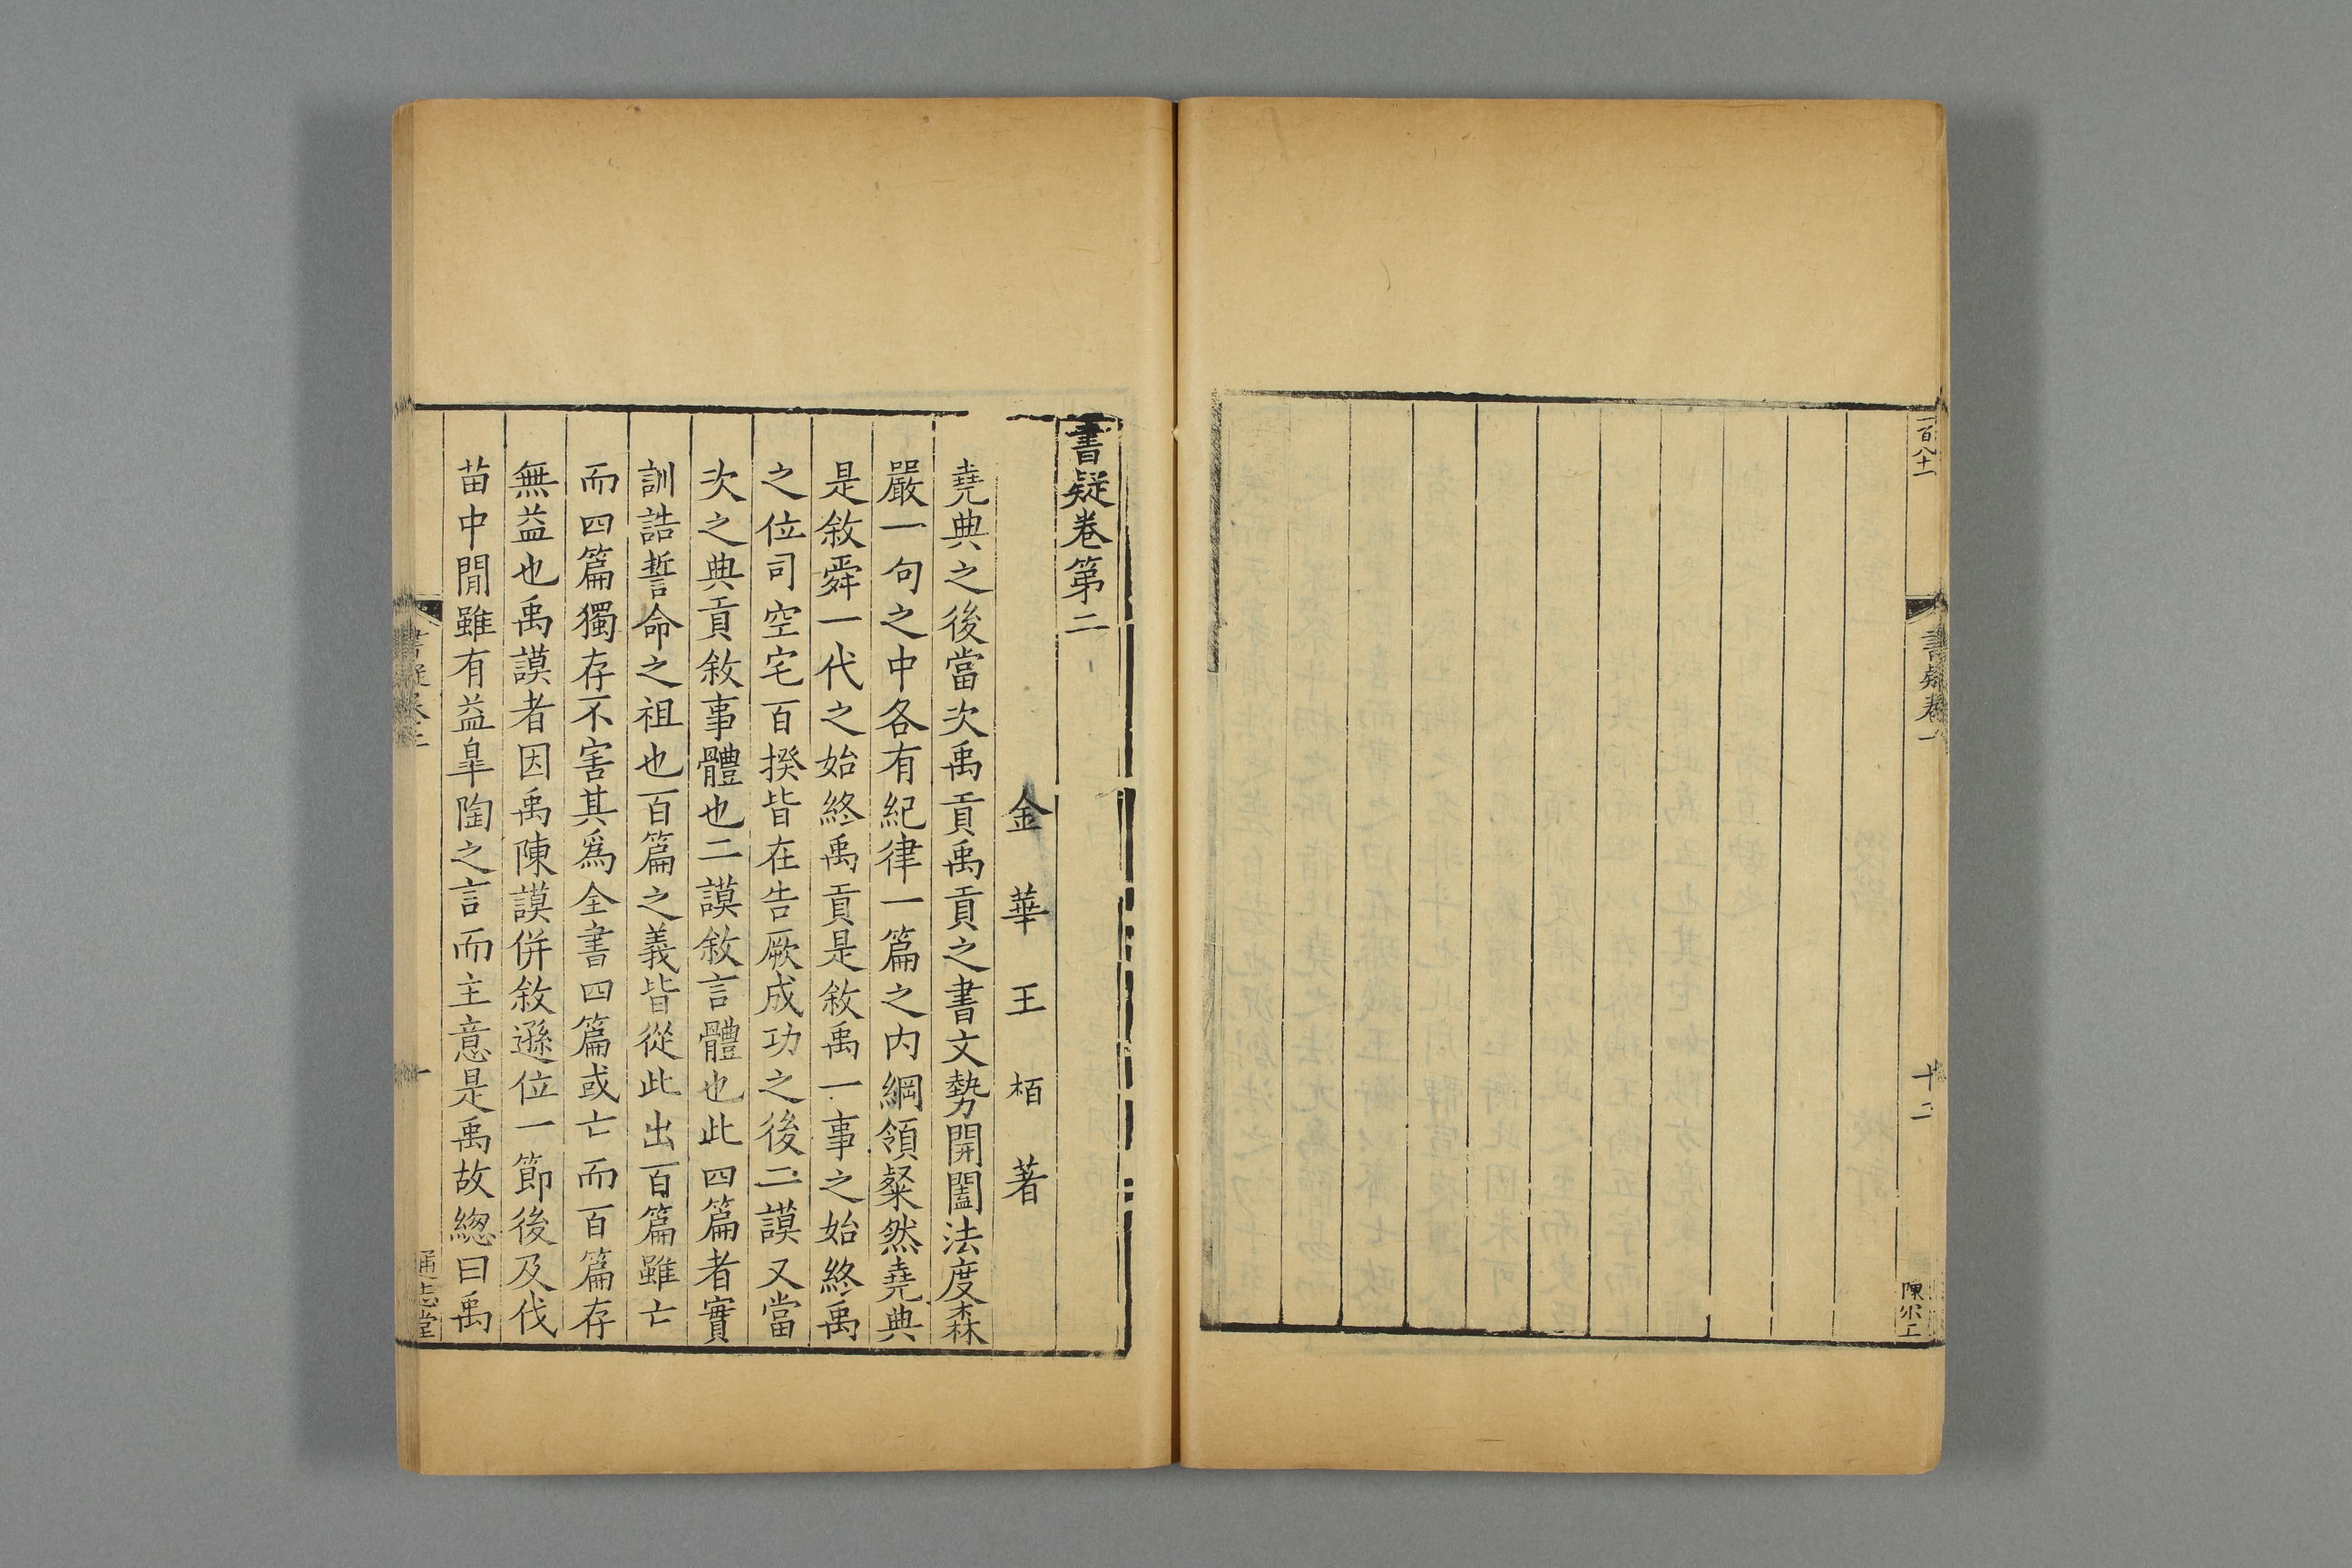 一百八十一
書疑卷一
十二
書疑卷第二
金華王栢著
堯典之後當次禹貢禹貢之書文勢開闔法度森
嚴一句之中各有紀律一篇之內綱領粲然堯典
是敘舜一代之始終禹貢是敘禹一事之始終禹
之位司空宅百揆皆在告厥成功之後二謨又當
次之典貢敘事體也二謨敘言體也此四篇者實
訓誥誓命之祖也百篇之義皆從此出百篇雖亡
而四篇獨存不害其爲全書四篇或亡而百篇存
無益也禹謨者因禹陳謨併敘遜位一節後及伐
苗中閒雖有益皐陶之言而主意是禹故緫曰禹
書疑卷二
一
通志堂